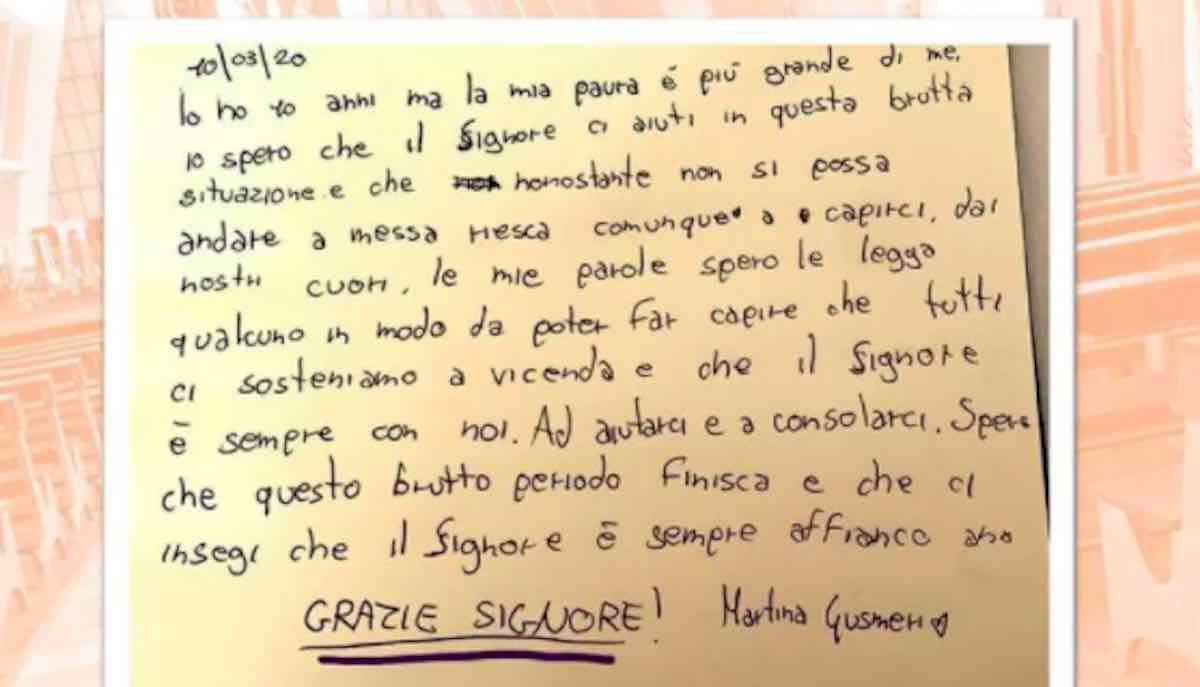 10/03/20
Io ho 10 anni ma la mia paura è più grande di me.
io spero che il Signore ci aiuti in questa brutta
situazione e che nonostante non si possa
andare a messa riesca comunque a capirci, dai
nostri cuori, le mie parole spero le legga
qualcuno in modo da poter far capire che tutti
ci sosteniamo a vicenda e che il Signore
è sempre con noi. Ad aiutarci e a consolarci. Spero
che questo brutto periodo finisca e che ci
insegi che il Signore è sempre affianco a noi
GRAZIE SIGNORE! Martina Gusmeri